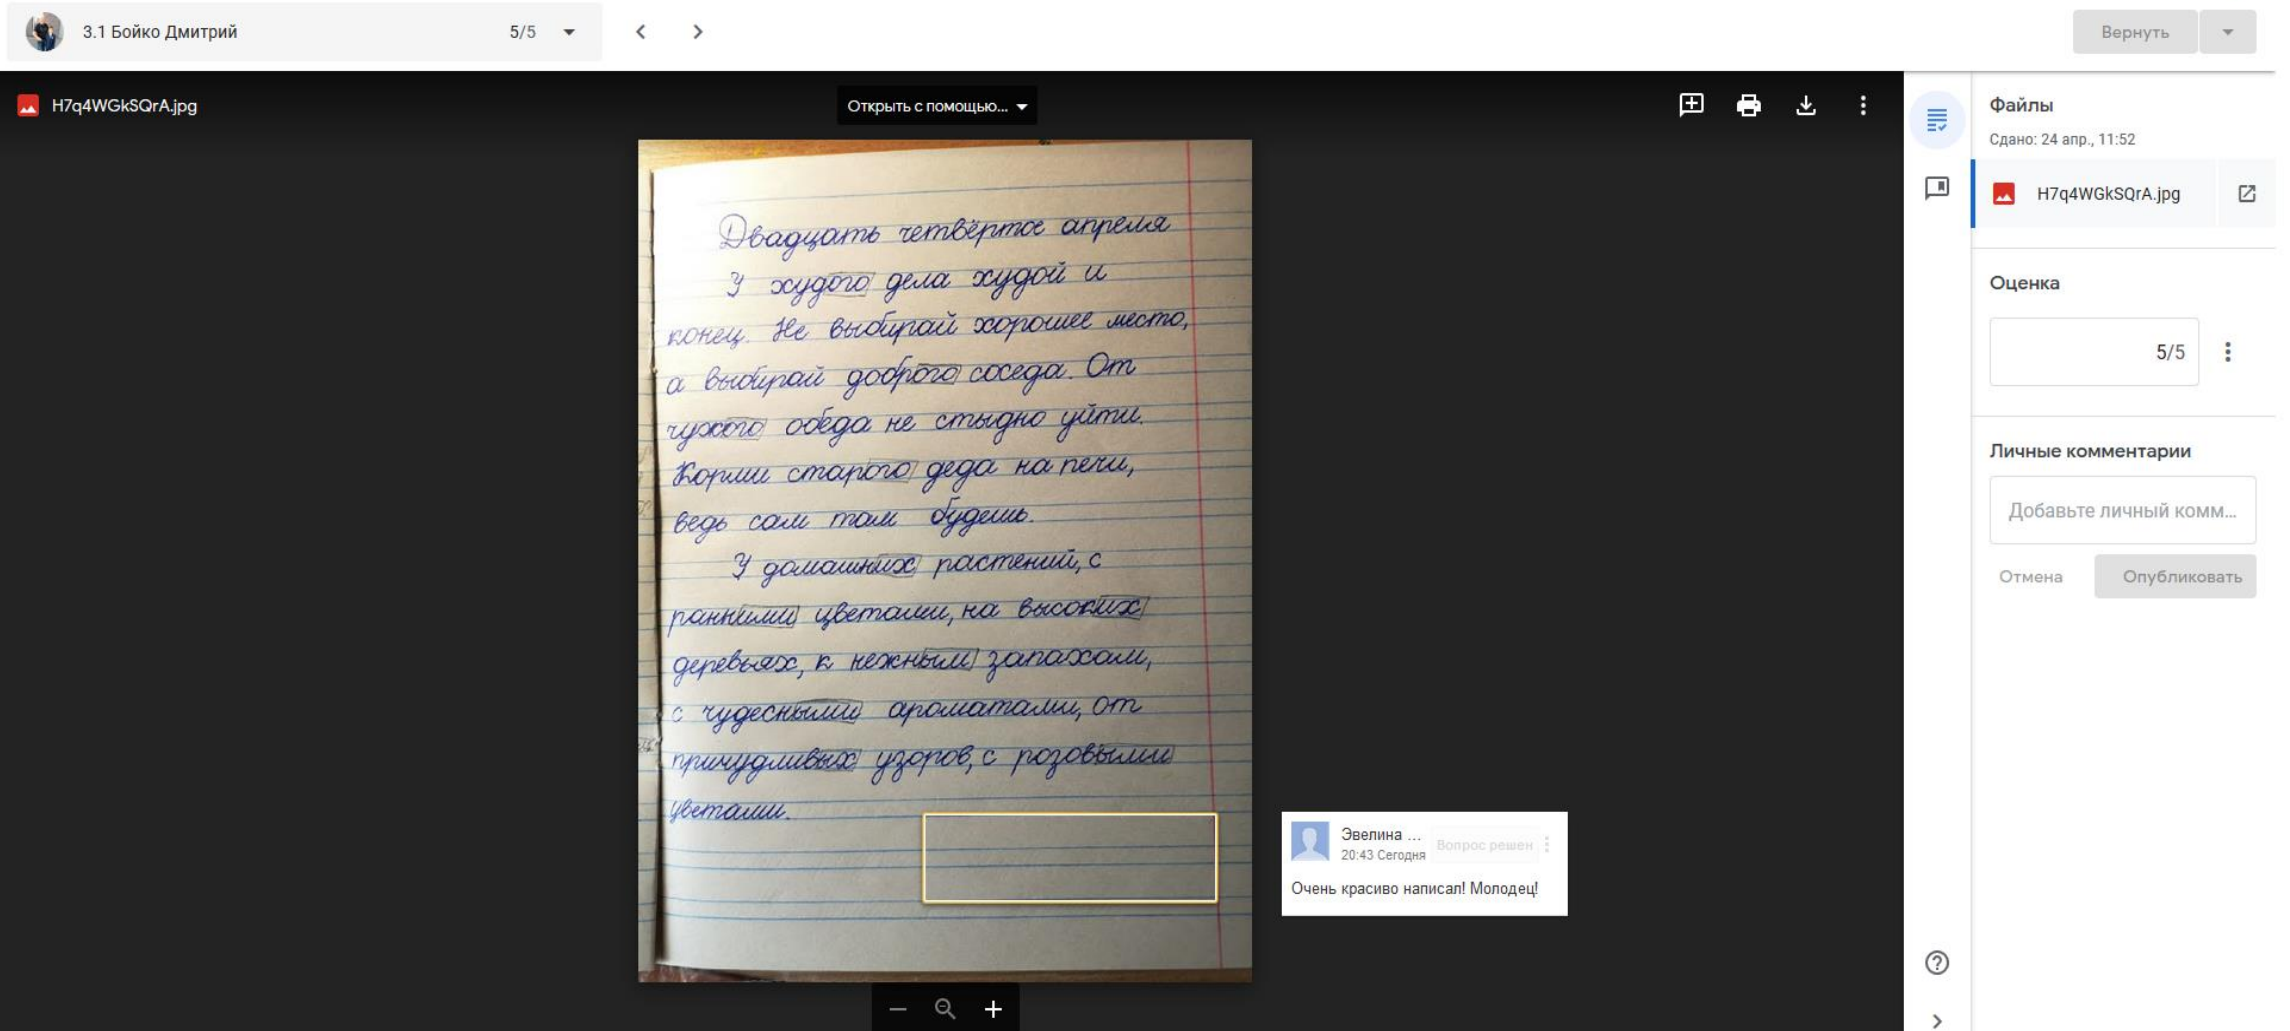 3.1 Бойко Дмитрий
5/5
Вернуть
H7q4WGkSQrA.jpg
Открыть с помощью...
Двадцать четвёртое апреля
У худого дела худой и
конец. Не выбирай хорошее место,
а выбирай доброго соседа. От
чужого обеда не стыдно уйти.
Корми старого деда на печи,
ведь сам там будешь.
У домашних растений, с
ранними цветами, на высоких
деревьях, к нежным запахам,
с чудесными ароматами, от
причудливых узоров, с розовыми
цветами.
Эвелина ...
Вопрос решен
20:43 Сегодня
Очень красиво написал! Молодец!
Файлы
Сдано: 24 апр., 11:52
H7q4WGkSQrA.jpg
Оценка
5/5
Личные комментарии
Добавьте личный комм...
Отмена
Опубликовать